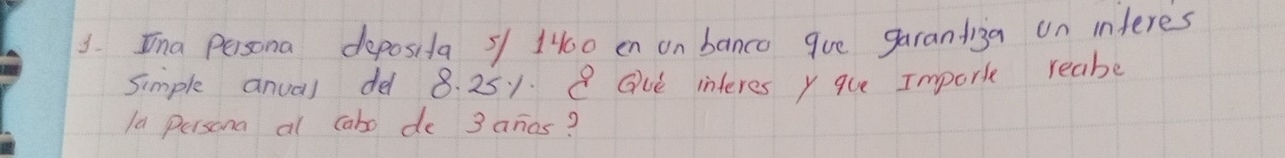 1. Una Persona deposita s/ 1400 en un banco que garantiza un interes
simple anual del 8.25%. ¿ Qué interes y que Importe reabe
la Persona al cabo de 3 años?